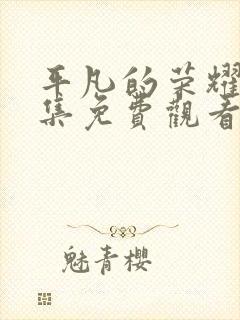 平凡的荣耀
集免費觀看
魅青櫻